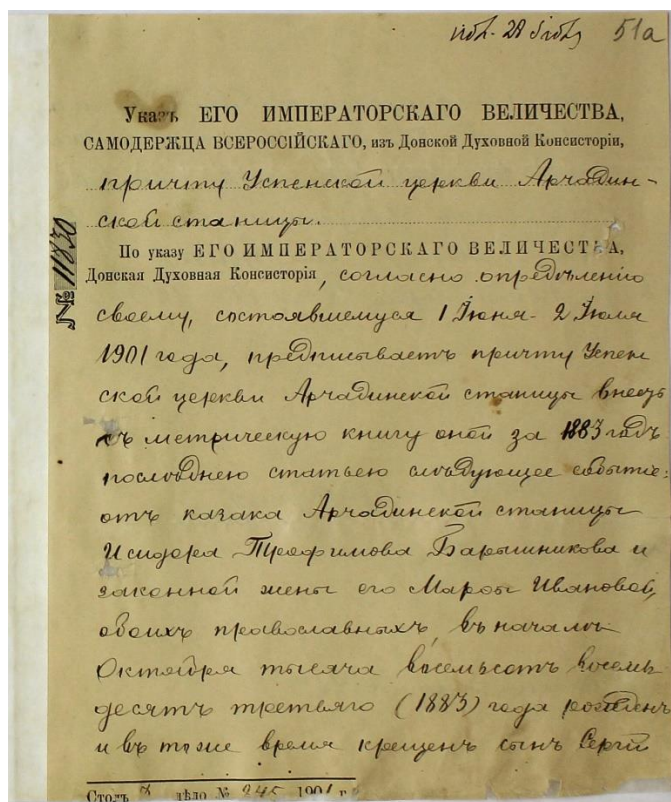 51а
Указъ ЕГО ИМПЕРАТОРСКАГО ВЕЛИЧЕСТВА,
САМОДЕРЖЦА ВСЕРОССІЙСКАГО, изъ Донской Духовной Консисторіи,
причту Успенской церкви Арчадин-
ской станицы.
По указу ЕГО ИМПЕРАТОРСКАГО ВЕЛИЧЕСТВА,
№ 11830
Донская Духовная Консисторія, согласно опредѣленію
своему, состоявшемуся 1 Іюня - 2 Іюля
1901 года, предписываетъ причту Успен
ской церкви Арчадинской станицы внесть
въ метрическую книгу оной за 1883 годъ
послѣднею статьею слѣдующее событіе:
отъ казака Арчадинской станицы
Исидора Трофимова Барышникова и
законной жены его Марѳы Ивановой,
обоихъ православныхъ, въ началѣ
Октября тысяча восемьсотъ восемь
десятъ третьяго (1883) года рожденъ
и въ тоже время крещенъ сынъ Сергій
Столъ 3 дѣло № 245 1901 г.